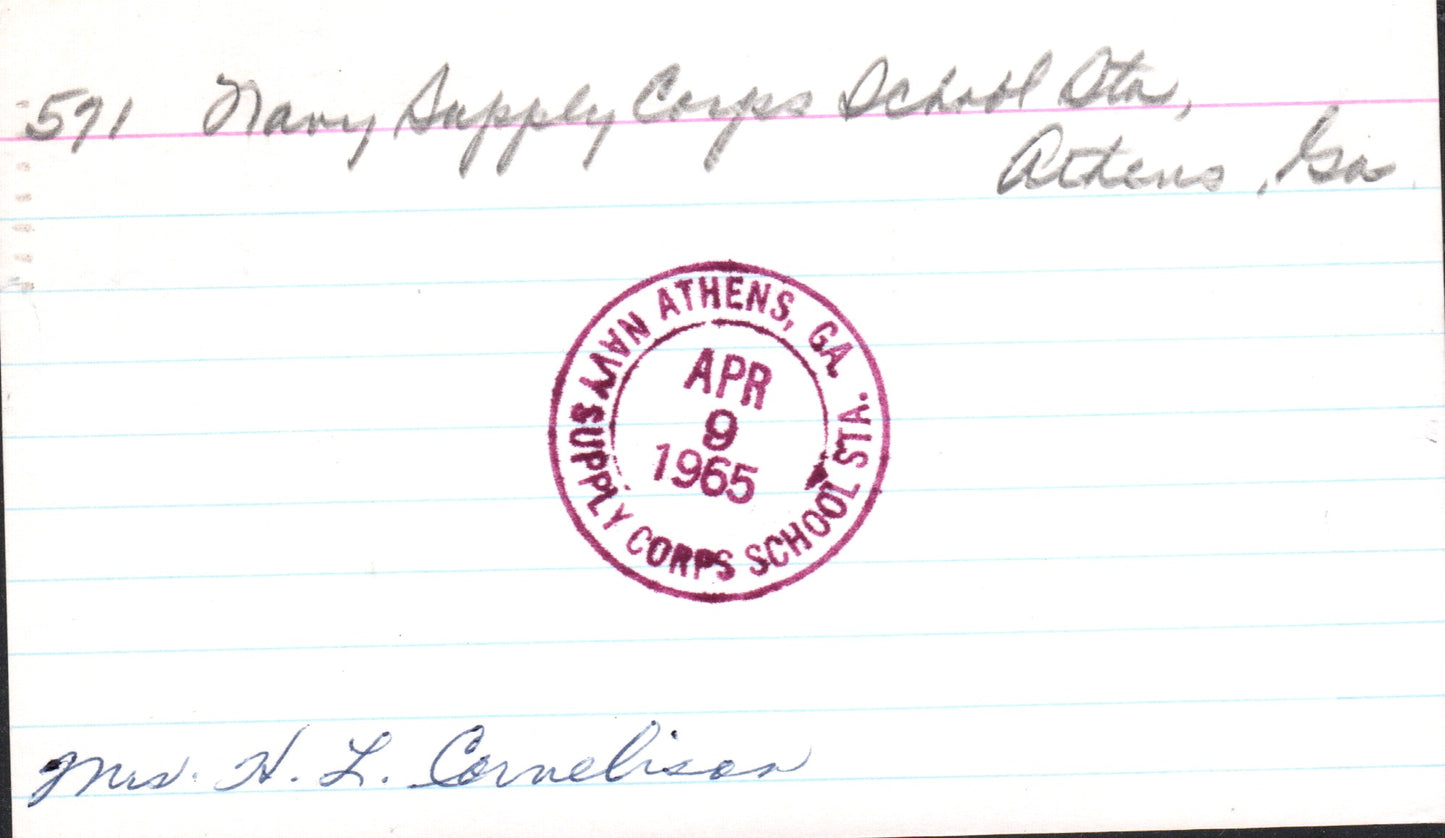 591 Navy Supply Corps School Sta,
Athens, Ga.
NAVY ATHENS, GA.
SUPPLY CORPS SCHOOL STA.
APR
9
1965
Mrs. H. L. Cornelison